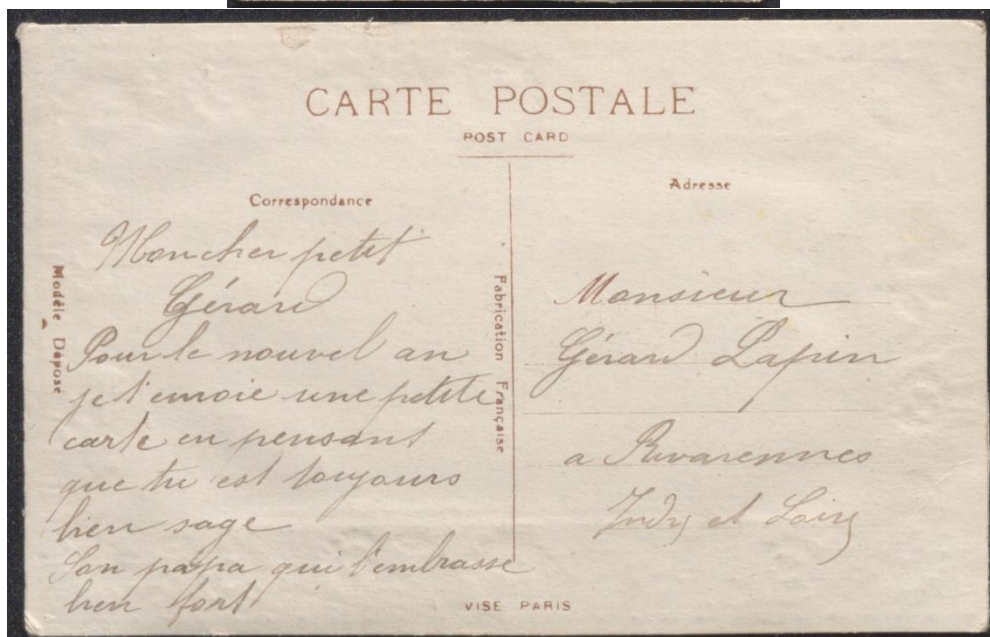 CARTE POSTALE
POST CARD
Correspondance
Mon cher petit
Gérard
Pour le nouvel an
je t'envoie une petite
carte en pensant
que tu est toujours
bien sage
Ton papa qui t'embrasse
bien fort
Modèle Déposé
Fabrication Française
Adresse
Monsieur
Gérard Lapin
a Rivarennes
Indre et Loire
VISE PARIS